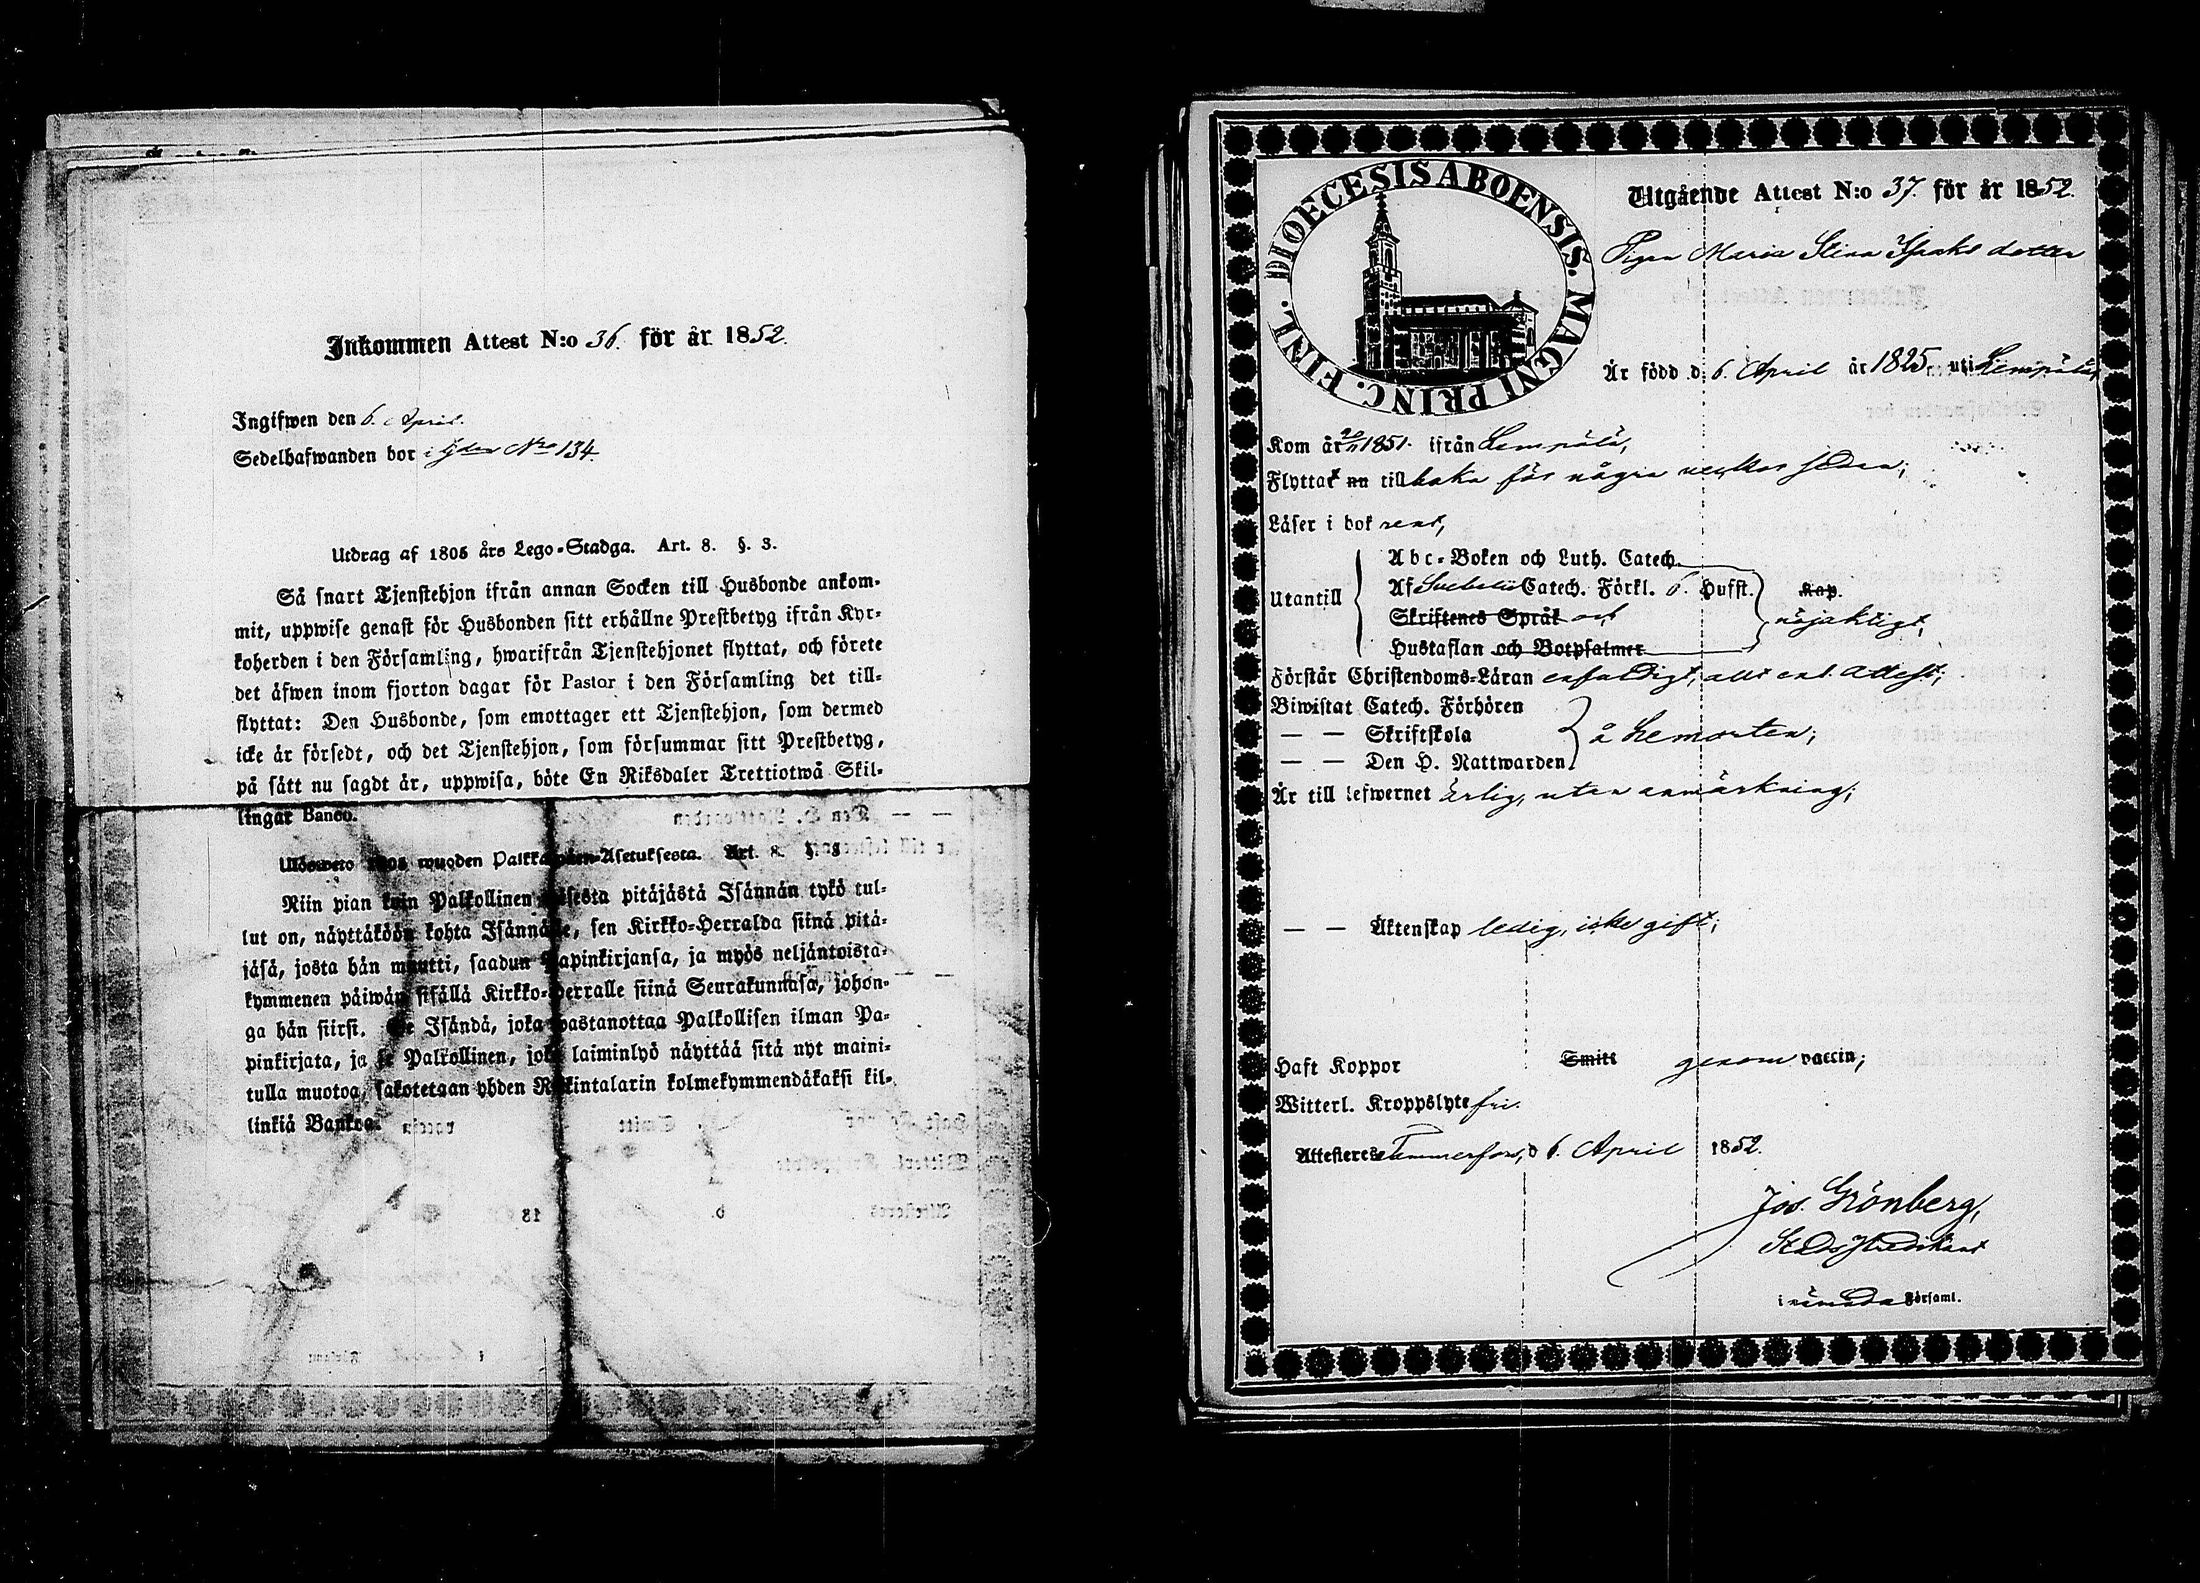 Inkommen Attest N:o 36. för år 1852.
Ingifwen den 6. April.
Sedelhafwanden bor i Gden Nro 134.
Utdrag af 1805 års Lego-Stadga. Art. 8. §. 3.
Så snart Tjenstehjon ifrån annan Socken till Husbonde ankom-
mit, uppwise genast för Husbonden sitt erhållne Prestbetyg ifrån Kyr-
koherden i den Församling, hwarifrån Tjenstehjonet flyttat, och förete
det äfwen inom fjorton dagar för Pastor i den Församling det till-
flyttat: Den Husbonde, som emottager ett Tjenstehjon, som dermed
icke är försedt, och det Tjenstehjon, som försummar sitt Prestbetyg,
på sätt nu sagdt är, uppwisa, böte En Riksdaler Trettiotwå Skil-
lingar Banco.
Ulosweto 1805 wuoden Palkkawäen-Asetuksesta. Art. 8. §. 3
Niin pian kuin Palkollinen toisesta pitäjästä Isännän tykö tul-
lut on, näyttäköön kohta Isännälle, sen Kirkko-Herralda siinä pitä-
jäsä, josta hän muutti, saadun Papinkirjansa, ja myös neljäntoista-
kymmenen päiwän sisällä Kirkko-Herralle siinä Seurakunnasa, johon-
ga hän siirsi. Se Isändä, joka wastanottaa Palkollisen ilman Pa-
pinkirjata, ja se Palkollinen, joka laiminlyö näyttää sitä nyt maini-
tulla muotoa, sakotetaan yhden Riikintalarin kolmekymmendäkaksi kil-
linkiä Bankoa.
DIOECESIS ABOENSIS. MAGNI PRINC. FINL.
Utgående Attest N:o 37. för år 1852.
Pigan Maria Stina Isaks dotter
Är född d. 6. April år 1825. uti Lempälä,
Kom år 1851. ifrån Lempälä,
Flyttat nu tillbaka för några veckor sedan;
Läser i bok rent,
Utantill
Abc-Boken och Luth. Catech.
Af Svebelii Catech. Förkl. 6. Hufst. Kap.
Skriftenes Språk och
Hustaflan och Botpsalmer
nöjaktigt,
Förstår Christendoms-Läran enfaldigt, allt enl. Attest;
Biwistat Catech. Förhören
— — Skriftskola
— — Den H. Nattwarden
å hemorten;
Är till lefwernet ärlig, utan anmärkning;
— — Äktenskap ledig, icke gift;
Haft Koppor Smitt genom vaccin;
Witterl. Kroppslyte fri.
Attesteres Tammerfors, d 6. April 1852.
Jos. Grönberg,
StadsPredikant
i nämnda Församl.